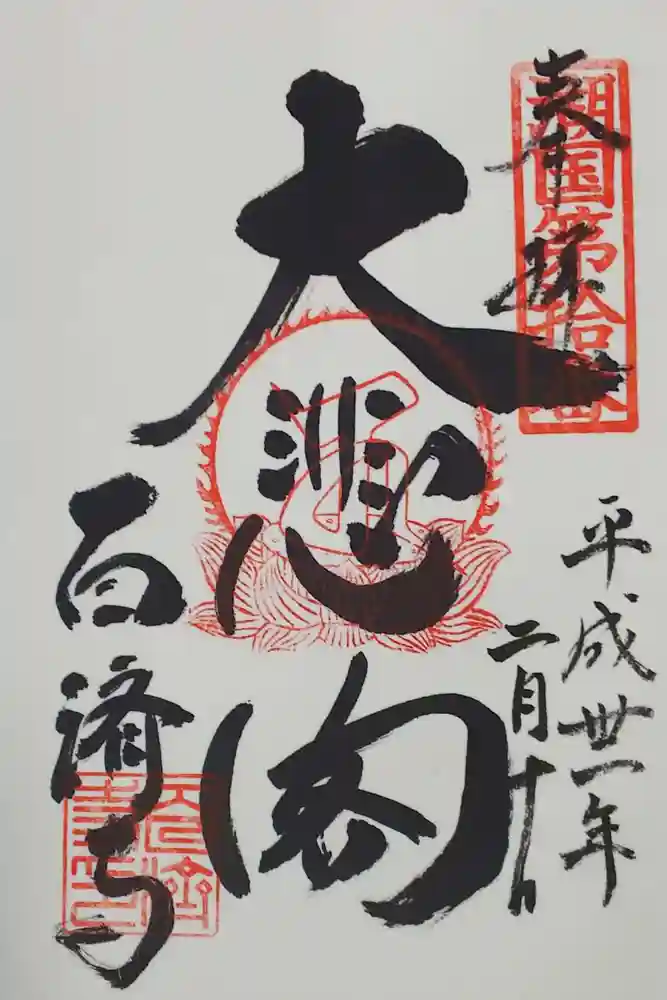 奉拝
湖国第拾壱番
平成卅一年
二月十日
大悲閣
百済寺